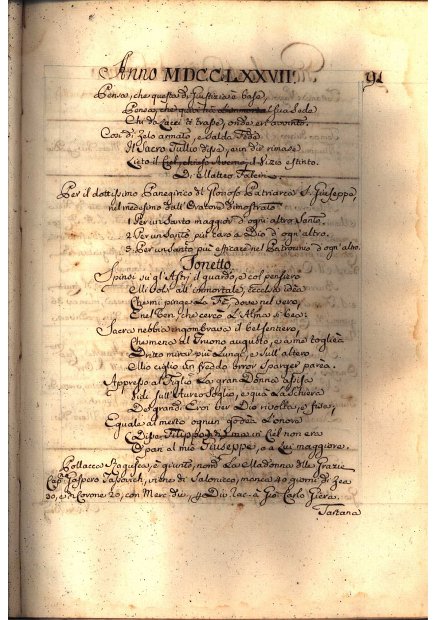 Anno MDCCLXXVII. 91
Pensa, che questa di Giustizia è base,
Pensa, che qua l'immortal sua Sede
Chi da lacci ti trasse, ond'eri avvinto.
Così di Zelo armato, e salda Fede
Il Sacro Tullio disse, e in dir rimase
Lieto il il Vizio estinto.
Di Matteo
Per il dottissimo Panegirico del Glorioso Patriarca S. Giuseppe,
nel medesimo dall'Oratore dimostrato
1. Per un Santo maggior d'ogni altro Santo.
2. Per un Santo più caro a Dio d'ogn'altro.
3. Per un Santo più efficace nel Patrocinio d'ogn'altro.
Sonetto
Spinsi su gl'Astri il guardo, e col pensiero
all'immortale, eccelsa idea
Che mi pinge la Fè, dove nel vero,
E nel Ben, che cercò l'Alma si bea:
Sacra nebbia ingombrava il bel sentiero,
Che mena al Truono augusto, e a me togliea
Dritto mirar più lungi, e sull'altero
Mio ciglio un freddo orror sparger parea.
Appresso al Figlio la gran Donna assisa
Vidi sull'Aureo Soglio, e quà la Schiera
De grandi Eroi ver Dio rivolta, e fisa,
Eguale al merto ognun godea l'onore
in Ciel non era
Di pari al mio Giuseppe, o a lui maggiore.
Pollacca Ragusea, è giunto, nom. La Madonna delle Grazie
Cap. Gaspero viene di Salonicco, manca 40 giorni di
e in Corone 20, con Merc. div. 4 Div. Rac. à Gio. Carlo
Tartana